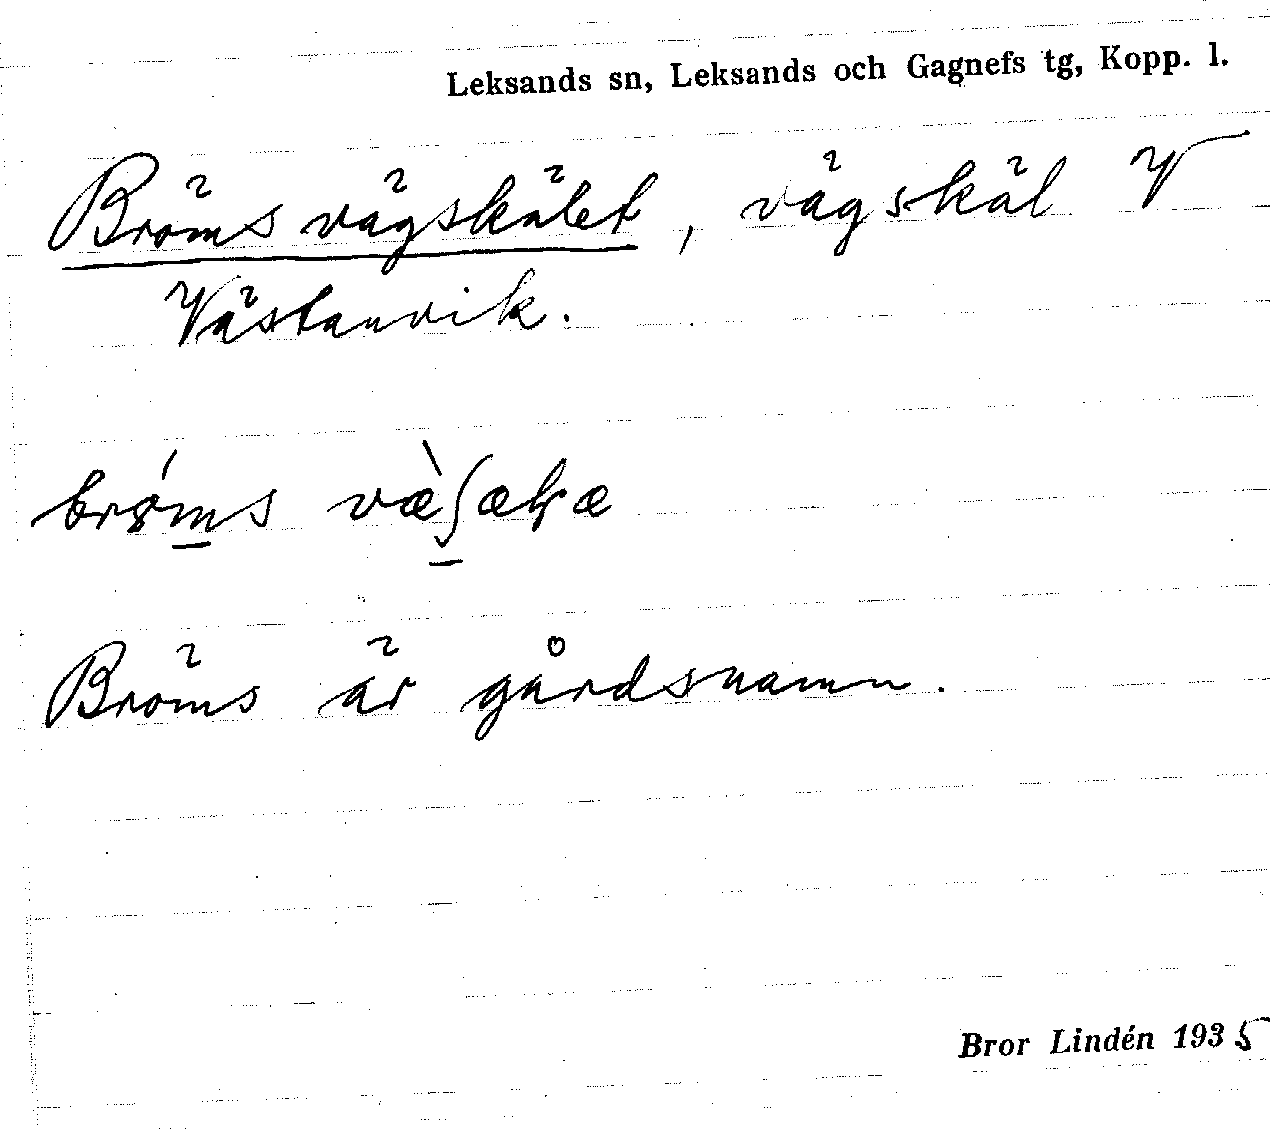 Leksands sn, Leksands och Gagnefs tg, Kopp. l.
Bröms vägskälet, vägskäl V
Västanvik.
Bröms är gårdsnamn.
Bror Lindén 1935